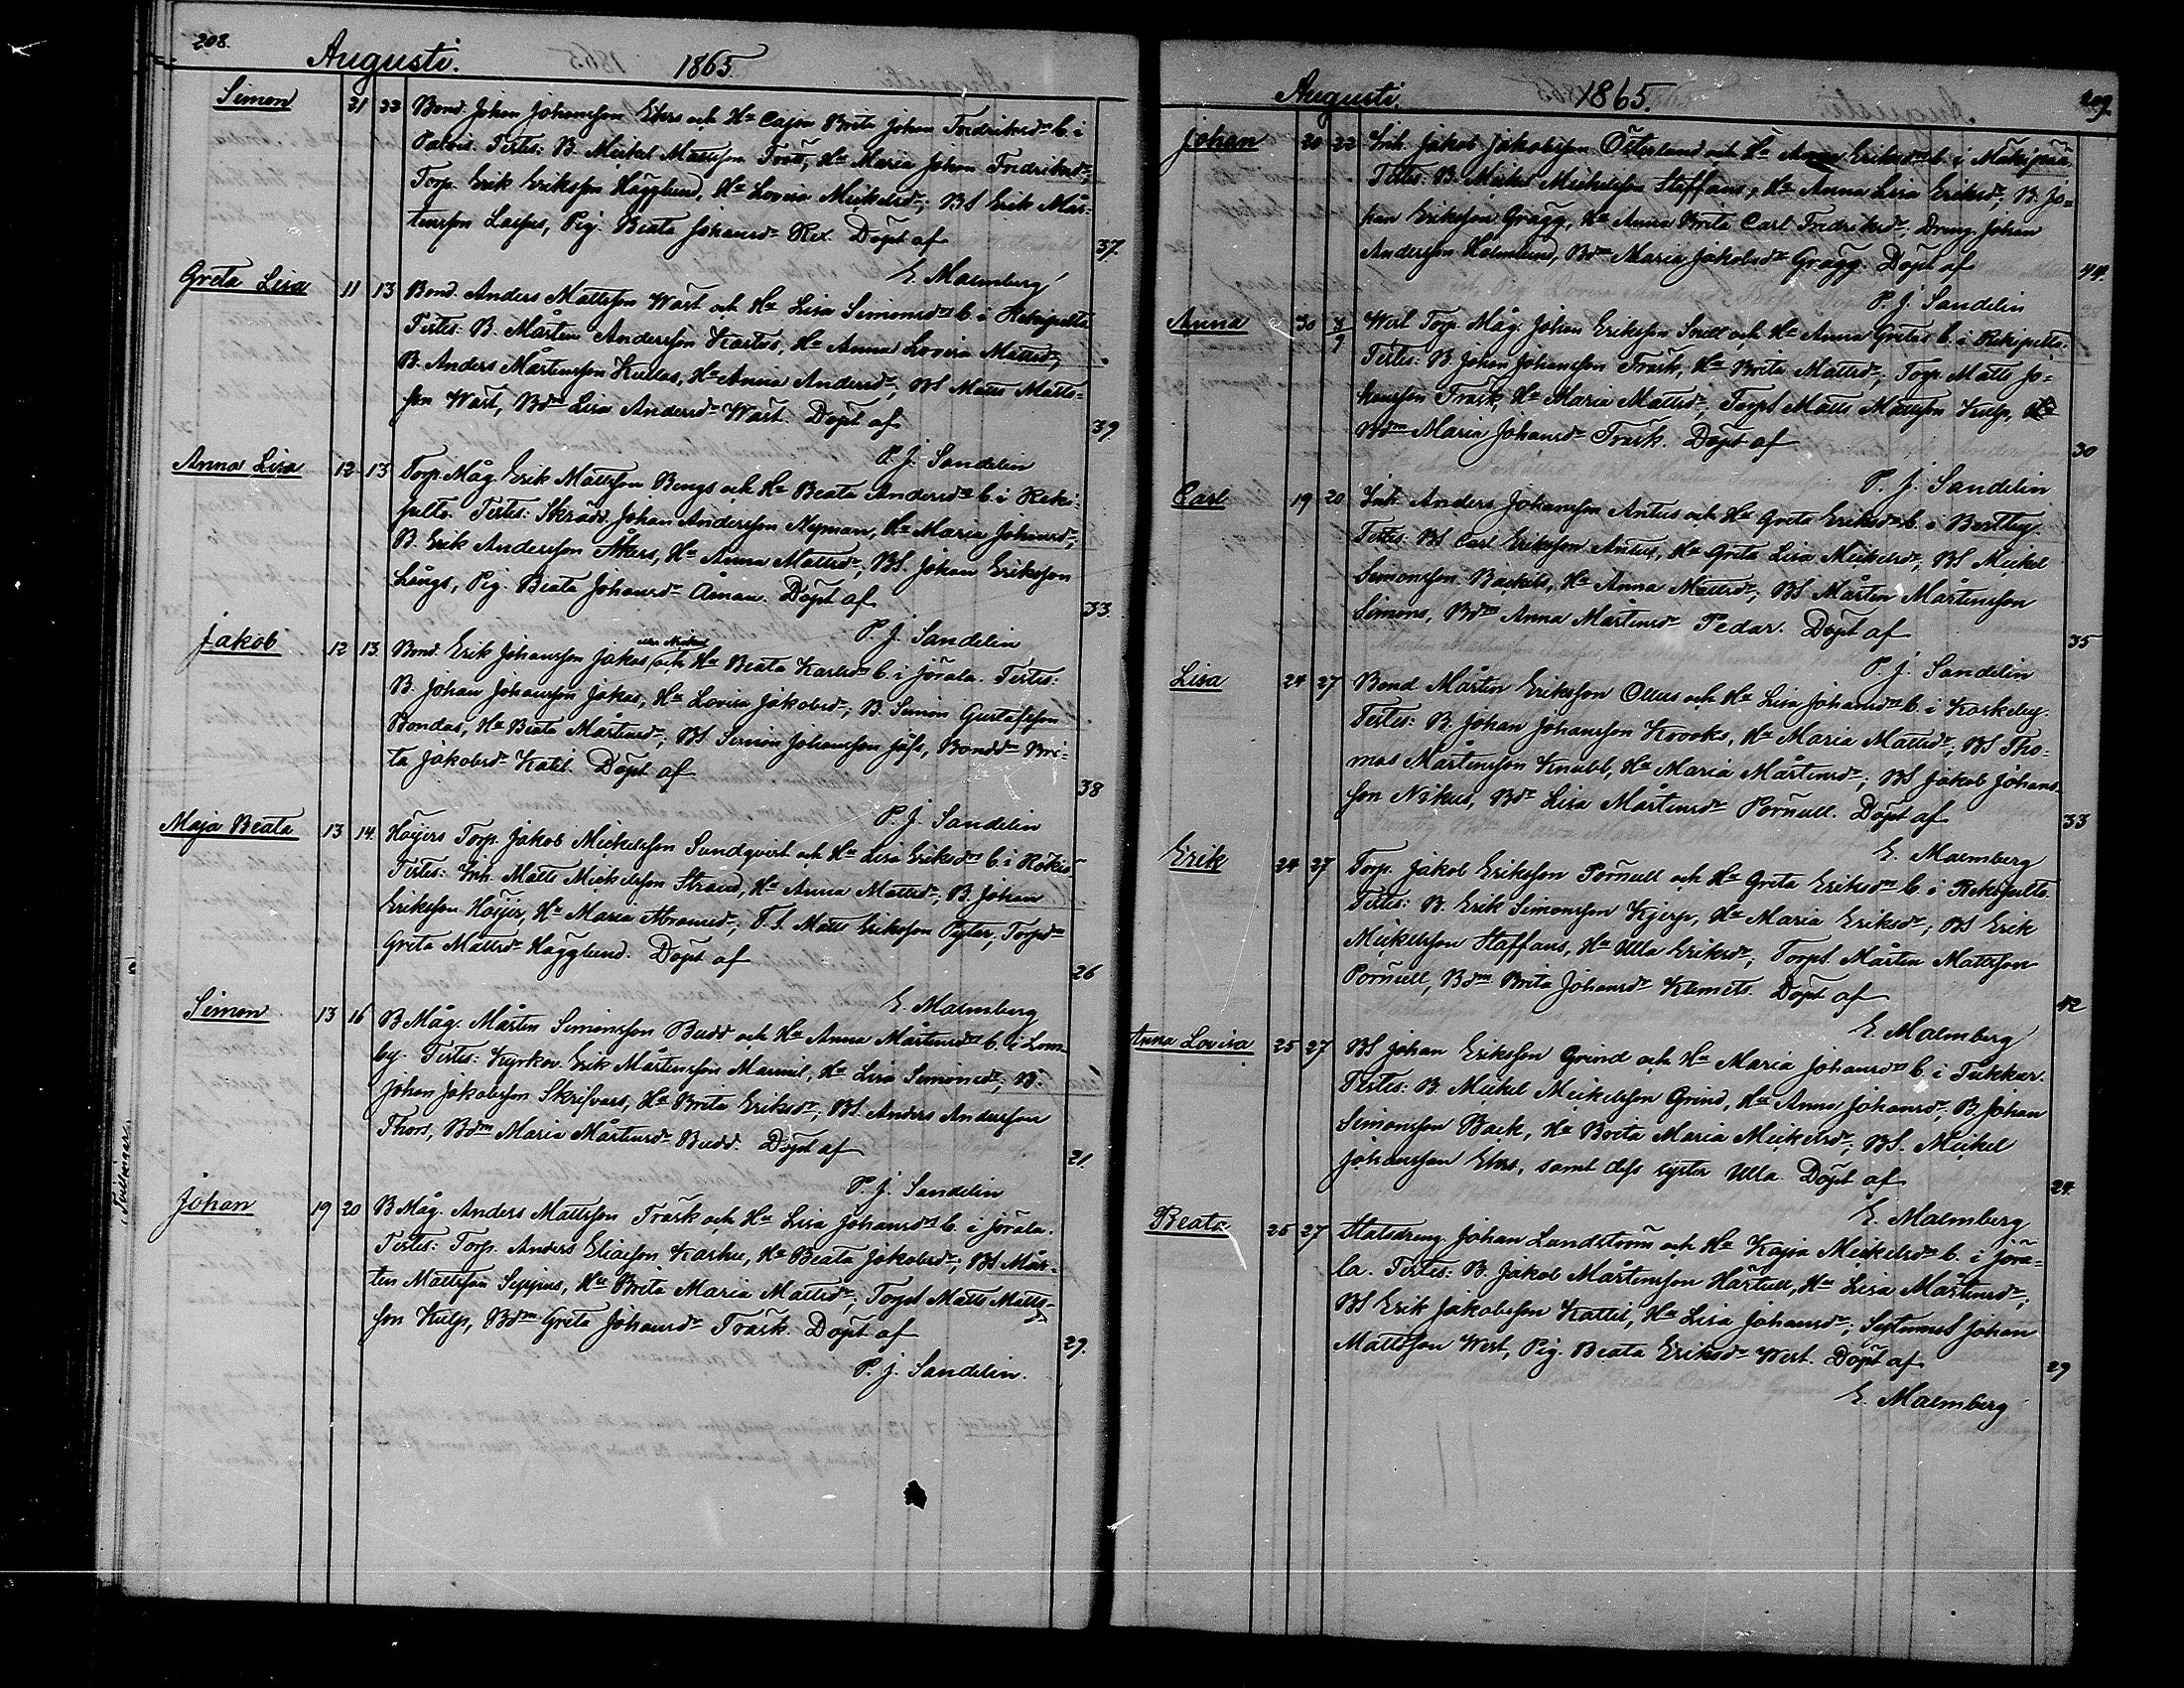 208.
Augusti. 1865.
Simon 21 22 Bond. Johan Johansson Ehrs och Hu Cajsa Brita Johan Fredriksdr b. i
Palvis. Testes: B. Mickel Mattsson Frott, Hu Maria Johan Fredriksdr;
Torp. Erik Eriksson Hägglund, Hu Lovisa Mickelsdr; BS Erik Mår-
tensson Laspas, Pig. Beata Johansdr Rex. Döpt af 37.
E. Malmberg
Greta Lisa 11 13 Bond. Anders Mattsson Wäst och Hu Lisa Simonsdr b. i Rekipelto
Testes: B. Mårten Andersson Kartus, Hu Anna Lovisa Mattsdr;
B. Anders Mårtensson Kullas, Hu Anna Andersdr; BS Matts Matts-
son Wäst, Bdm Lisa Andersdr Wäst. Döpt af 39
P. J. Sandelin
Anna Lisa 12 13 Torp. Måg. Erik Mattsson Bengs och Hu Beata Andersdr b. i Reki-
pelto. Testes: Skrädd. Johan Andersson Nyman, Hu Maria Johansdr;
B. Erik Andersson Åkers, Hu Anna Mattsdr; BS. Johan Eriksson
Långs, Pig. Beata Johansdr Åman. Döpt af 33.
P. J. Sandelin
Jakob 12 13. Bond. Erik Johansson Jakas och Hu Beata Karlsdr b. i Jörala. Testes:
B. Johan Johansson Jakas, Hu Lovisa Jakobsdr; B. Simon Gustafsson
Bondas, Hu Beata Mårtensdr; BS Simon Johansson Jåfs, Bonddr Bri-
ta Jakobsdr Katil. Döpt af 38
P. J. Sandelin
Maja Beata 13 14. Höijers Torp. Jakob Mickelsson Sundqvist och Hu Lisa Eriksdr b. i Rökiö
Testes: Inh. Matts Mickelsson Strand, Hu Anna Mattsdr; B. Johan
Eriksson Höijer, Hu Maria Abramsdr; T. S. Matts Eriksson Pistar, Torpdr
Greta Mattsdr Hägglund. Döpt af 26
E. Malmberg
Simon 13 16 B Måg. Mårten Simonsson Budd och Hu Anna Mårtensdr b. i Lom-
by. Testes: Kyrkov. Erik Mårtensson Marmil, Hu Lisa Simonsdr; B.
Johan Jakobsson Skrifvars, Hu Brita Eriksdr; BS. Anders Andersson
Thors, Bdm Maria Mårtensdr Budd. Döpt af 21.
P. J. Sandelin
Johan 19 20 B Måg. Anders Mattsson Träsk och Hu Lisa Johansdr b. i Jörala.
Testes: Torp. Anders Eliasson Karhu, Hu Beata Jakobsdr; BS Mår-
ten Mattsson Seppas, Hu Brita Maria Mattsdr; TorpS Matts Matts-
son Kulp, Bdm Greta Johansdr Träsk. Döpt af 29.
P. J. Sandelin.
Tvillingar.
Augusti. 1865. 209.
Johan 20 22 Inh. Jakob Jakobsson Österlund och Hu Anna Eriksdr b. i Mäkipää.
Testes: B. Mickel Mickelsson Staffans, Hu Anna Lisa Eriksdr; B. Jo-
han Eriksson Grägg, Hu Anna Brita Carl Fredriksdr; Dreng. Johan
Andersson Holmlund, Bdm Maria Jakobsdr Grägg. Döpt af 44.
P. J. Sandelin
Anna 30 3/9 West Torp. Måg. Johan Eriksson Snell och Hu Anna Greta b. i Rekipelto.
Testes: B. Johan Johansson Träsk, Hu Brita Mattsdr; Torp. Matts Jo-
hansson Träsk, Hu Maria Mattsdr; TorpS Matts Mattsson Kulp,
Bdm Maria Johansdr Träsk. Döpt af 30
P. J. Sandelin
Carl 19 20 Inh. Anders Johansson Antus och Hu Greta Eriksdr b. i Bertby.
Testes: BS Carl Eriksson Antus, Hu Greta Lisa Mickelsdr; BS Mickel
Simonsson Backels, Hu Anna Mattsdr; BS Mårten Mårtensson
Simons, Bdm Anna Mårtensdr Pedar. Döpt af 35
P. J. Sandelin
Lisa 24 27 Bond Mårten Eriksson Ollus och Hu Lisa Johansdr b. i Karkeby.
Testes: B. Johan Johansson Krooks, Hu Maria Mattsdr; BS Tho-
mas Mårtensson Knubb, Hu Maria Mårtensdr; BS Jakob Johans-
son Nikus, Bdr Lisa Mårtensdr Pörnull. Döpt af 33
E. Malmberg
Erik 24 27 Torp. Jakob Eriksson Pörnull och Hu Greta Eriksdr b. i Rekipelto.
Testes: B. Erik Simonsson Kjerp, Hu Maria Eriksdr; BS Erik
Mickelsson Staffans, Hu Ulla Eriksdr; TorpS. Mårten Mattsson
Pörnull, Bdm Brita Johansdr Klemets. Döpt af 42
E. Malmberg
Anna Lovisa 25 27 BS Johan Eriksson Grind och Hu Maria Johansdr b. i Tukkur.
Testes: B. Mickel Mickelsson Grind, Hu Anna Johansdr; B. Johan
Simonsson Back, Hu Brita Maria Mickelsdr; BS. Mickel
Johansson Ehrs, samt dess syster Ulla. Döpt af 24.
E. Malmberg
Beata 25 27 Statsdreng. Johan Lundström och Hu Kajsa Mickelsdr b. i Jöra-
la. Testes: B. Jakob Mårtensson Härtull, Hu Lisa Mårtensdr;
BS Erik Jakobsson Kattil, Hu Lisa Johansdr; Sytinnes Johan
Mattsson West, Pig. Beata Eriksdr West. Döpt af 29
E. Malmberg